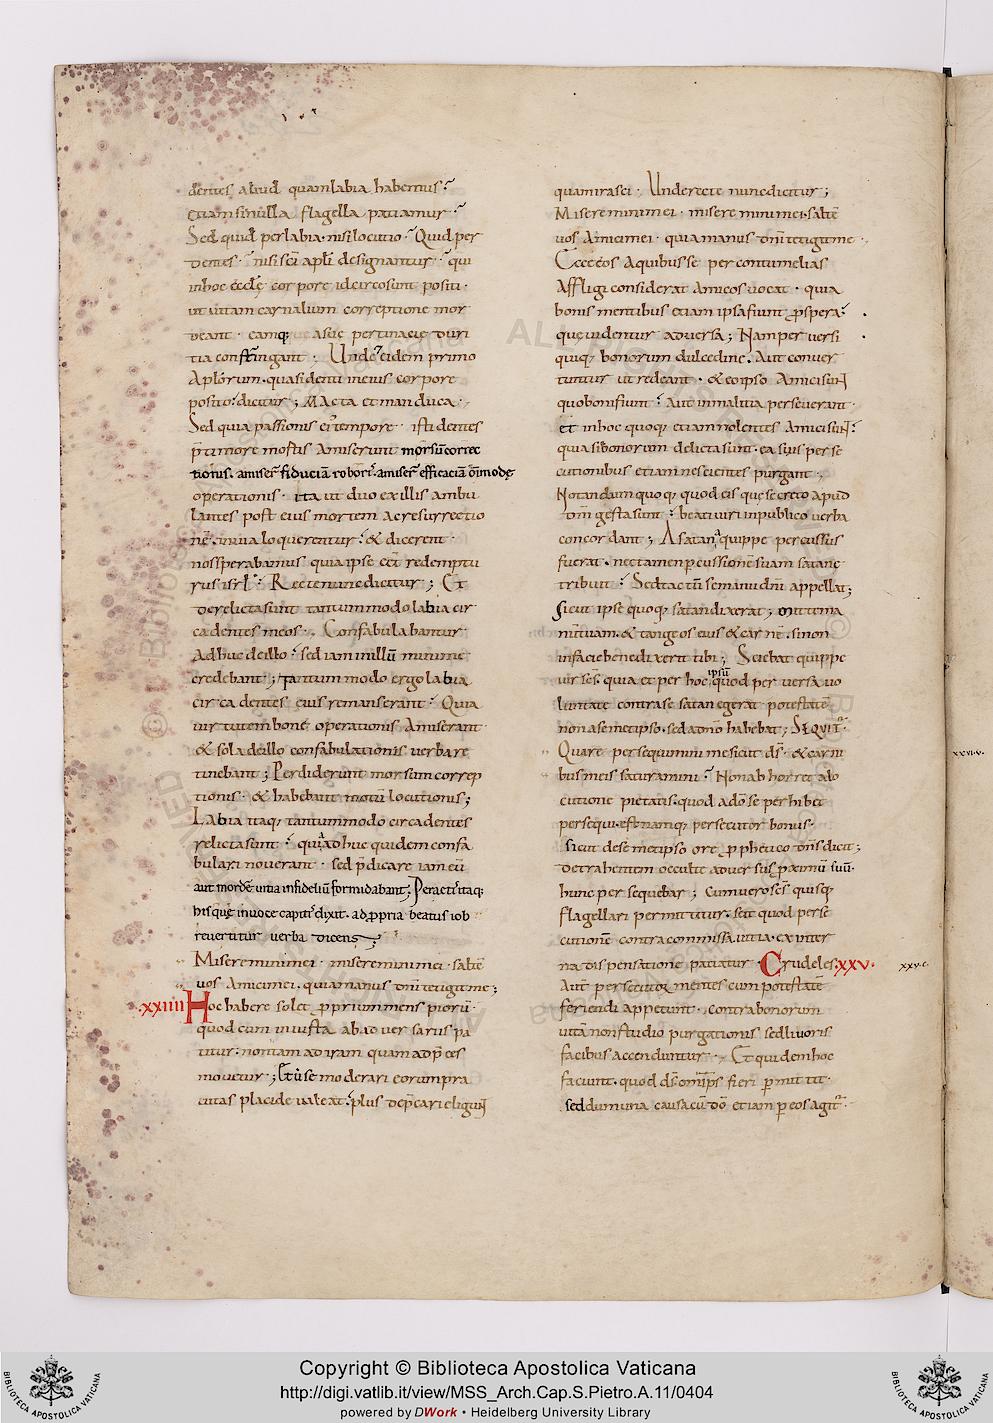 dentes aliud quam labia habemus?
etiam si nulla flagella patiamur?
Sed quid per labia nisi locutio? Quid per
dentes nisi sc̄i apl̄i designantur? qui
in hoc eccl̄ę corpore idcirco sunt positi
ut vitam carnalium correptione mor
deant eamq; a suę pertinacię duri
tia confringant. Unde eidem primo
aplōrum quasi denti in eius corpore
posito dicitur; Macta et manduca.
Sed quia passionis ei' tempore isti dentes
p̄ timore mortis amiserunt morsū correc
tionis. amiser̄ fiduciā robort̄. amiser̄ efficaciā om̄imodę
operationis. ita ut duo ex illis ambu
lantes post eius mortem ac resurrectio
nē. in via loquerentur & dicerent
nos sperabamus quia ipse eēt redemptu
rus isrl̄. Recte nunc dicitur; Et
derelicta sunt tantummodo labia cir
ca dentes meos. Confabulabantur
adhuc de illo sed iam in illū minime
credebant; Tantummodo ergo labia
circa dentes eius remanserant. Quia
virtutem bonę operationis amiserant
& sola de illo confabulationis verba re
tinebant; Perdiderunt morsum correp
tionis & habebant motū locutionis;
Labia itaq; tantummodo circa dentes
relicta sunt quia adhuc quidem confa
bulari noverant sed p̄dicare iam eū
aut mordere vitia infideliū formidabant; Peractis itaq;
his quę in voce capitis dixit. ad propria beatus iob
revertitur verba dicens;
Miseremini mei. miseremini mei saltē
vos amici mei. quia manus dn̄i tetigit me;
xxiiii Hoc habere solet proprium mens piorū
quod cum iniusta ab adversariis pa
titur. non tam ad iram quam ad p̄ces
movetur; Et ū se moderari eorum pra
vitas placide valeat. plus dep̄cari eligunt
quam irasci. Unde recte nunc dicitur;
Miseremini mei. miseremini mei saltē
vos amici mei. quia manus dn̄i tetigit me.
Ecce eos a quibus se per contumelias
affligi considerat amicos vocat. quia
bonis mentibus etiam ipsa fiunt prospera
quę videntur adversa; Nam perversi
quiq; bonorum dulcedine. Aut conver
tuntur ut redeant. & eo ipso amici sunt
quo boni fiunt. Aut in malitia perseverant
et in hoc quoq; etiam nolentes amici sunt
quia si bonorum delicta sunt. ea suis perse
cutionibus etiam nescientes purgant.
Notandum quoq; quod eis quę secreto apud
dm̄ gesta sunt beati viri in publico verba
concordant; A satana quippe percussus
fuerat. nec tamen percussionē suam satanę
tribuit. Sed tactū se manu dn̄i appellat;
Sicut ipse quoq; satan dixerat; mitte ma
nū tuam. & tange os eius & carnē. si non
in facie benedixerit tibi; Sciebat quippe
vir sc̄s. quia et per hoc ipsū quod perversa vo
luntate contra se satan egerat potestatē
non a semetipso. sed a dn̄o habebat; SEQUITUR
Quare persequimini me sicut ds̄. & carni
bus meis saturamini? Non abhorret a lo
cutione pietatis. quod a dō se perhibet
persequi. est namq; persecutor bonus.
Sicut de semetipso ore prophetico dn̄s dicit;
Detrahentem occulte adversus proximū suū.
hunc persequebar; Cum vero sc̄s quisq;
flagellari permittitur. scit quod perse
cutionē contra commissa vitia. ex inter
na dispensatione patiatur. Crudeles xxv.
Autē persecutor mentes cum potestatē
feriendi appetunt. contra bonorum
vitā non studio purgationis sed livoris
facibus accenduntur. Et quidem hoc
faciunt. quod ds̄ omnip̄s fieri permittit.
sed dum una causa cū dō etiam p eos agit'.
xxvi.v.
xxv.c.
Copyright © Biblioteca Apostolica Vaticana
http://digi.vatlib.it/view/MSS_Arch.Cap.S.Pietro.A.11/0404
powered by DWork • Heidelberg University Library
BIBLIOTECA APOSTOLICA VATICANA
BIBLIOTECA APOSTOLICA VATICANA